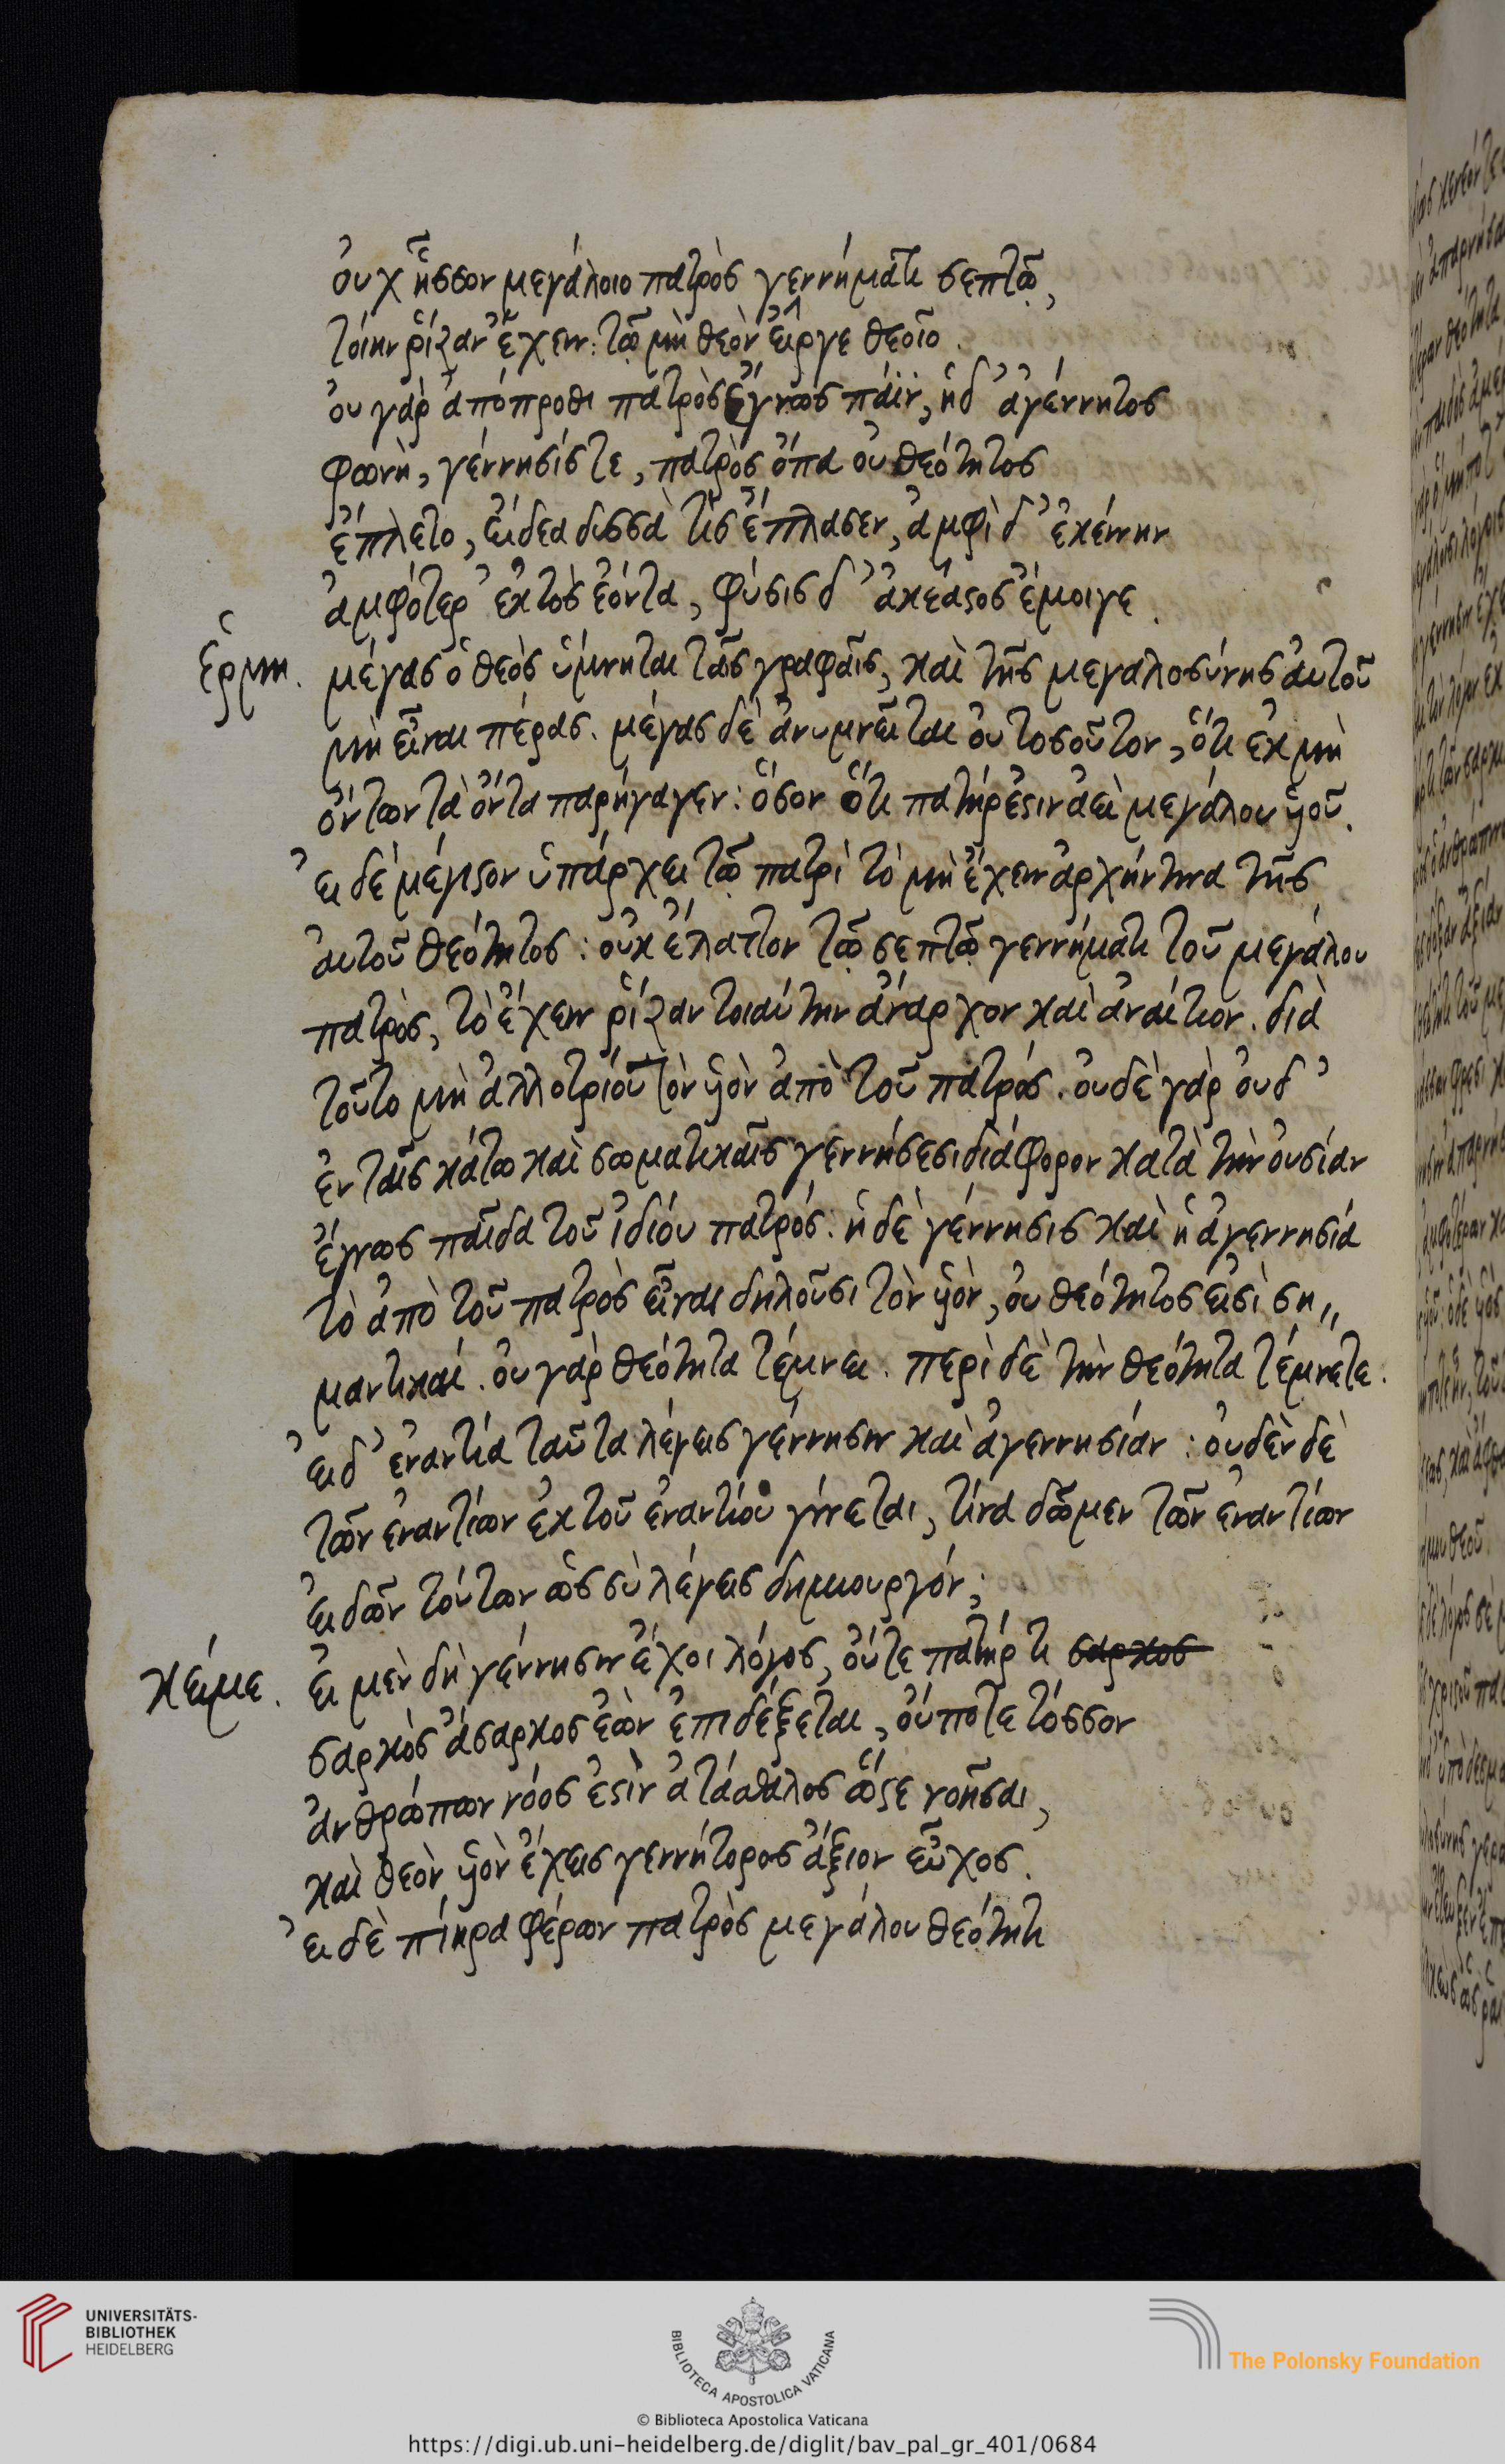 ὀυχ ἧσσον μεγάλοιο πατρὸς γεννήματι σεπτῶ,
τόιην ῥίζαν ἔχειν: τῶ μὴ θεὸν εἶργε θεοῖο.
ὀυ γὰρ ἀπόπροθι πατρὸς ἔγνως πάϊν, ἡδ' ἀγέννητος
φωνὴ, γέννησίς τε, πατρὸς ὄπα οὐ θεότητος
ἔπλετο, εἴδεα δισσὰ τίς ἔπλασεν, ἀμφὶ δ' ἐκείνην
ἀμφότερ' ἐκτὸς ἐόντα, φύσις δ' ἀκέαστος ἔμοιγε.
ἑρμη. μέγας ὁ θεὸς ὑμνηται ταῖς γραφαῖς, καὶ τῆς μεγαλοσύνης ἀυτοῦ
μὴ εἶναι πέρας. μέγας δὲ ἀνυμνεῖται ὀυ τοσοῦτον, ὅτι ἐκ μὴ
ὄντων τὰ ὄντα παρήγαγεν: ὅσον ὅτι πατήρ ἐστιν ἀεὶ μεγάλου ὑιοῦ.
ἐι δὲ μέγιστον ὑπάρχει τῶ πατρὶ τὸ μὴ ἔχειν ἀρχήν τινα τῆς
ἀυτοῦ θεότητος: οὐκ ἔλαττον τῶ σεπτῶ γεννήματι τοῦ μεγάλου
πατρὸς, τὸ ἔχειν ῥίζαν τοιαύτην ἄναρχον καὶ ἀναίτιον. διὰ
τοῦτο μὴ ἀλλοτρίου τὸν ὑιὸν ἀπὸ τοῦ πατρός. ὀυδὲ γὰρ ὀυδ'
ἐν ταῖς κάτω καὶ σωματικαῖς γεννήσεσι διάφορον κατὰ τὴν ὀυσίαν
ἔγνως παῖδα τοῦ ἰδίου πατρός: ἡ δὲ γέννησις καὶ ἡ ἀγεννησία
τὸ ἀπὸ τοῦ πατρὸς εἶναι δηλοῦσι τὸν ὑιὸν, ὀυ θεότητος εἰσὶ ση,,
μαντικαί. ὀυ γὰρ θεότητα τέμνει. περὶ δὲ τὴν θεότητα τέμνετε:
ἐι δ' ἐναντία ταῦτα λέγεις γέννησιν καὶ ἀγεννησίαν: ὀυδὲν δὲ
τῶν ἐναντίων ἐκ τοῦ ἐναντίου γίνεται, τίνα δῶμεν τῶν ἐναντίων
ἐιδῶν τούτων ὡς σὺ λέγεις δημιουργόν;
κείμε. ἐι μὲν δὴ γέννησιν ἔχοι λόγος, οὔτε πατήρ τι σαρκος
σαρκὸς ἄσαρκος ἐὼν ἐπιδέξεται, ὄυποτε τόσσον
ἀνθρώπων νόος ἐστὶν ἀτάσθαλος ὥστε νοῆσαι,
καὶ θεὸν ὑιὸν ἔχεις γεννήτορος ἄξιον εὖχος.
ἐι δὲ πίηρα φέρων πατρὸς μεγάλου θεότητι
UNIVERSITÄTS-
BIBLIOTHEK
HEIDELBERG
BIBLIOTECA APOSTOLICA VATICANA
The Polonsky Foundation
© Biblioteca Apostolica Vaticana
https://digi.ub.uni-heidelberg.de/diglit/bav_pal_gr_401/0684